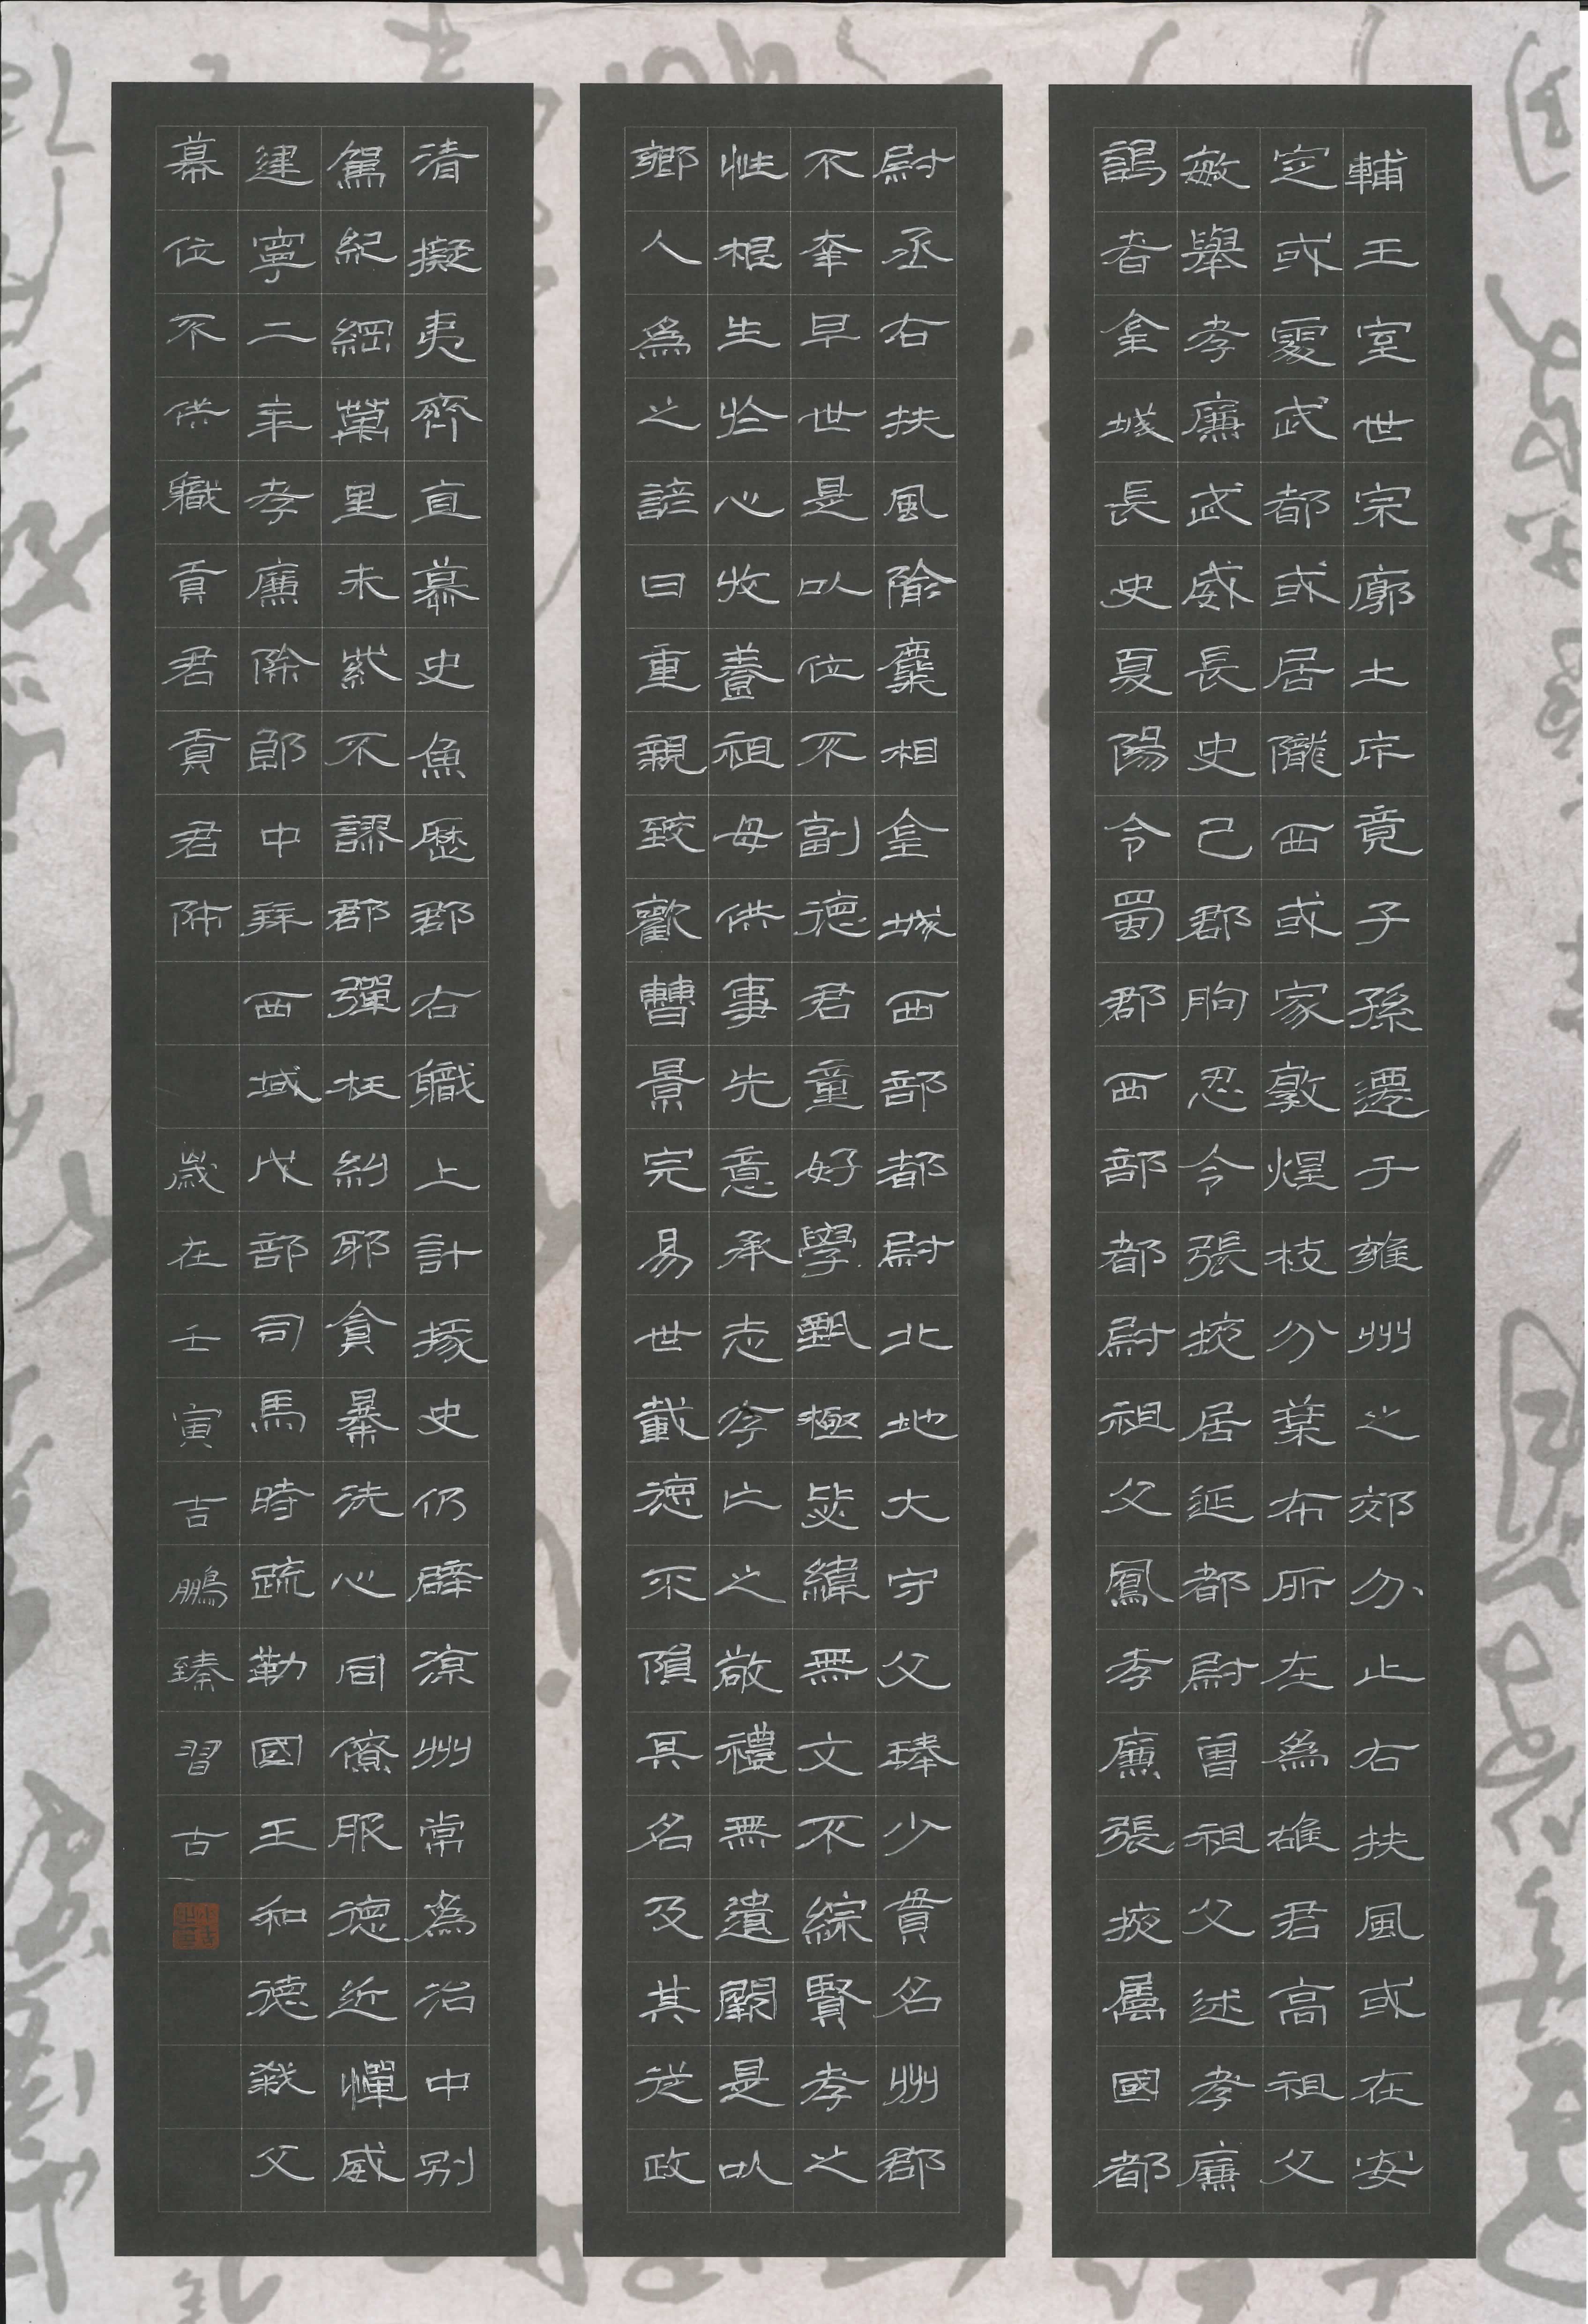 輔王室世宗廓土斥竟子孫遷于雍州之郊分止右扶風或在安
定或處武都或居隴西或家敦煌枝分葉布所在為雄君高祖父
敏舉孝廉武威長史己郡朐忍令張掖居延都尉曾祖父述孝廉
謁者金城長史夏陽令蜀郡西部都尉祖父鳳孝廉張掖屬國都
尉丞右扶風隃麋相金城西部都尉北地大守父琫少貫名州郡
不幸早世是以位不副德君童好學甄極毖緯無文不綜賢孝之
性根生於心收養祖母供事先意承志存亡之敬禮無遺闕是以
鄉人為之諺曰重親致歡曹景完易世載德不隕其名及其從政
清擬夷齊直慕史魚歷郡右職上計掾史仍辟涼州常為治中別
駕紀綱萬里朱紫不謬郡彈枉糾邪貪暴洗心同僚服德近憚威
建寧二年孝廉除郎中拜西域戊部司馬時疏勒國王和德弒父
篡位不供職貢君貢君師
歲在壬寅吉鵬臻習古